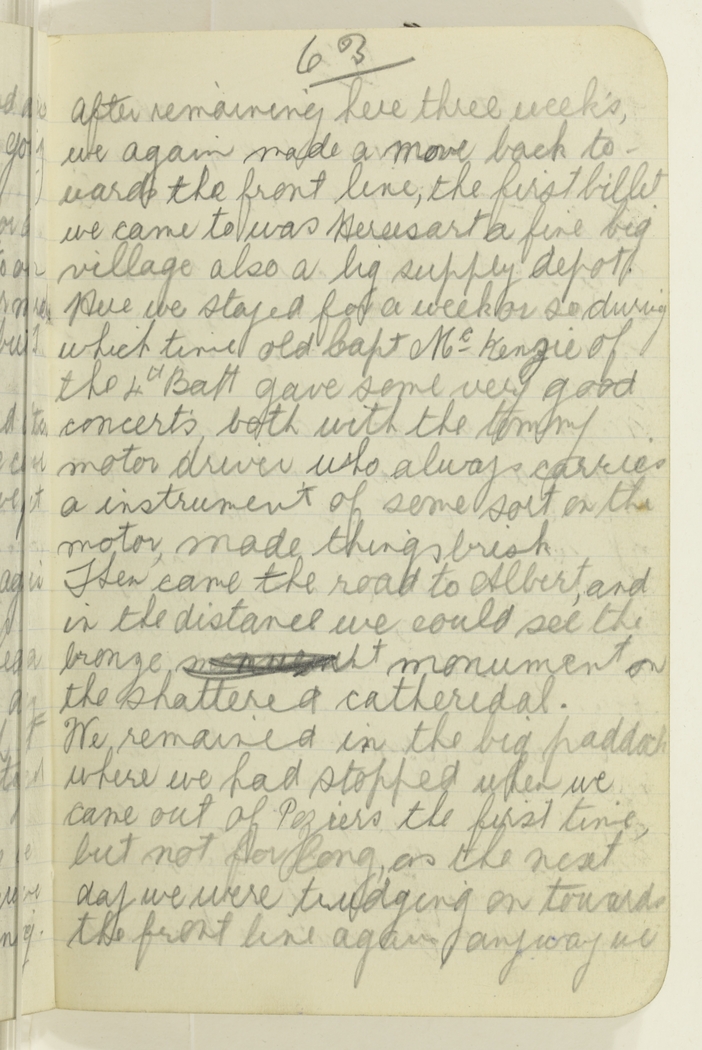 63
after remaining here three weeks,
we again made a move back to-
wards the front line, the first billet
we came to was a fine big
village also a big supply depot.
Here we stayed for a week or so during
which time old Capt McKenzie of
the 4th Batt gave some very good
concerts, both with the tommy
motor driver who always carries
a instrument of some sort on the
motor, made things brisk
Then came the road to Albert, and
in the distance we could see the
bronze monument on
the shattered catheridal.
We remained in the big paddock
where we had stopped when we
came out of Poziers the first time,
but not for long, as the next
day we were trudging on towards
the front line again, anyway we